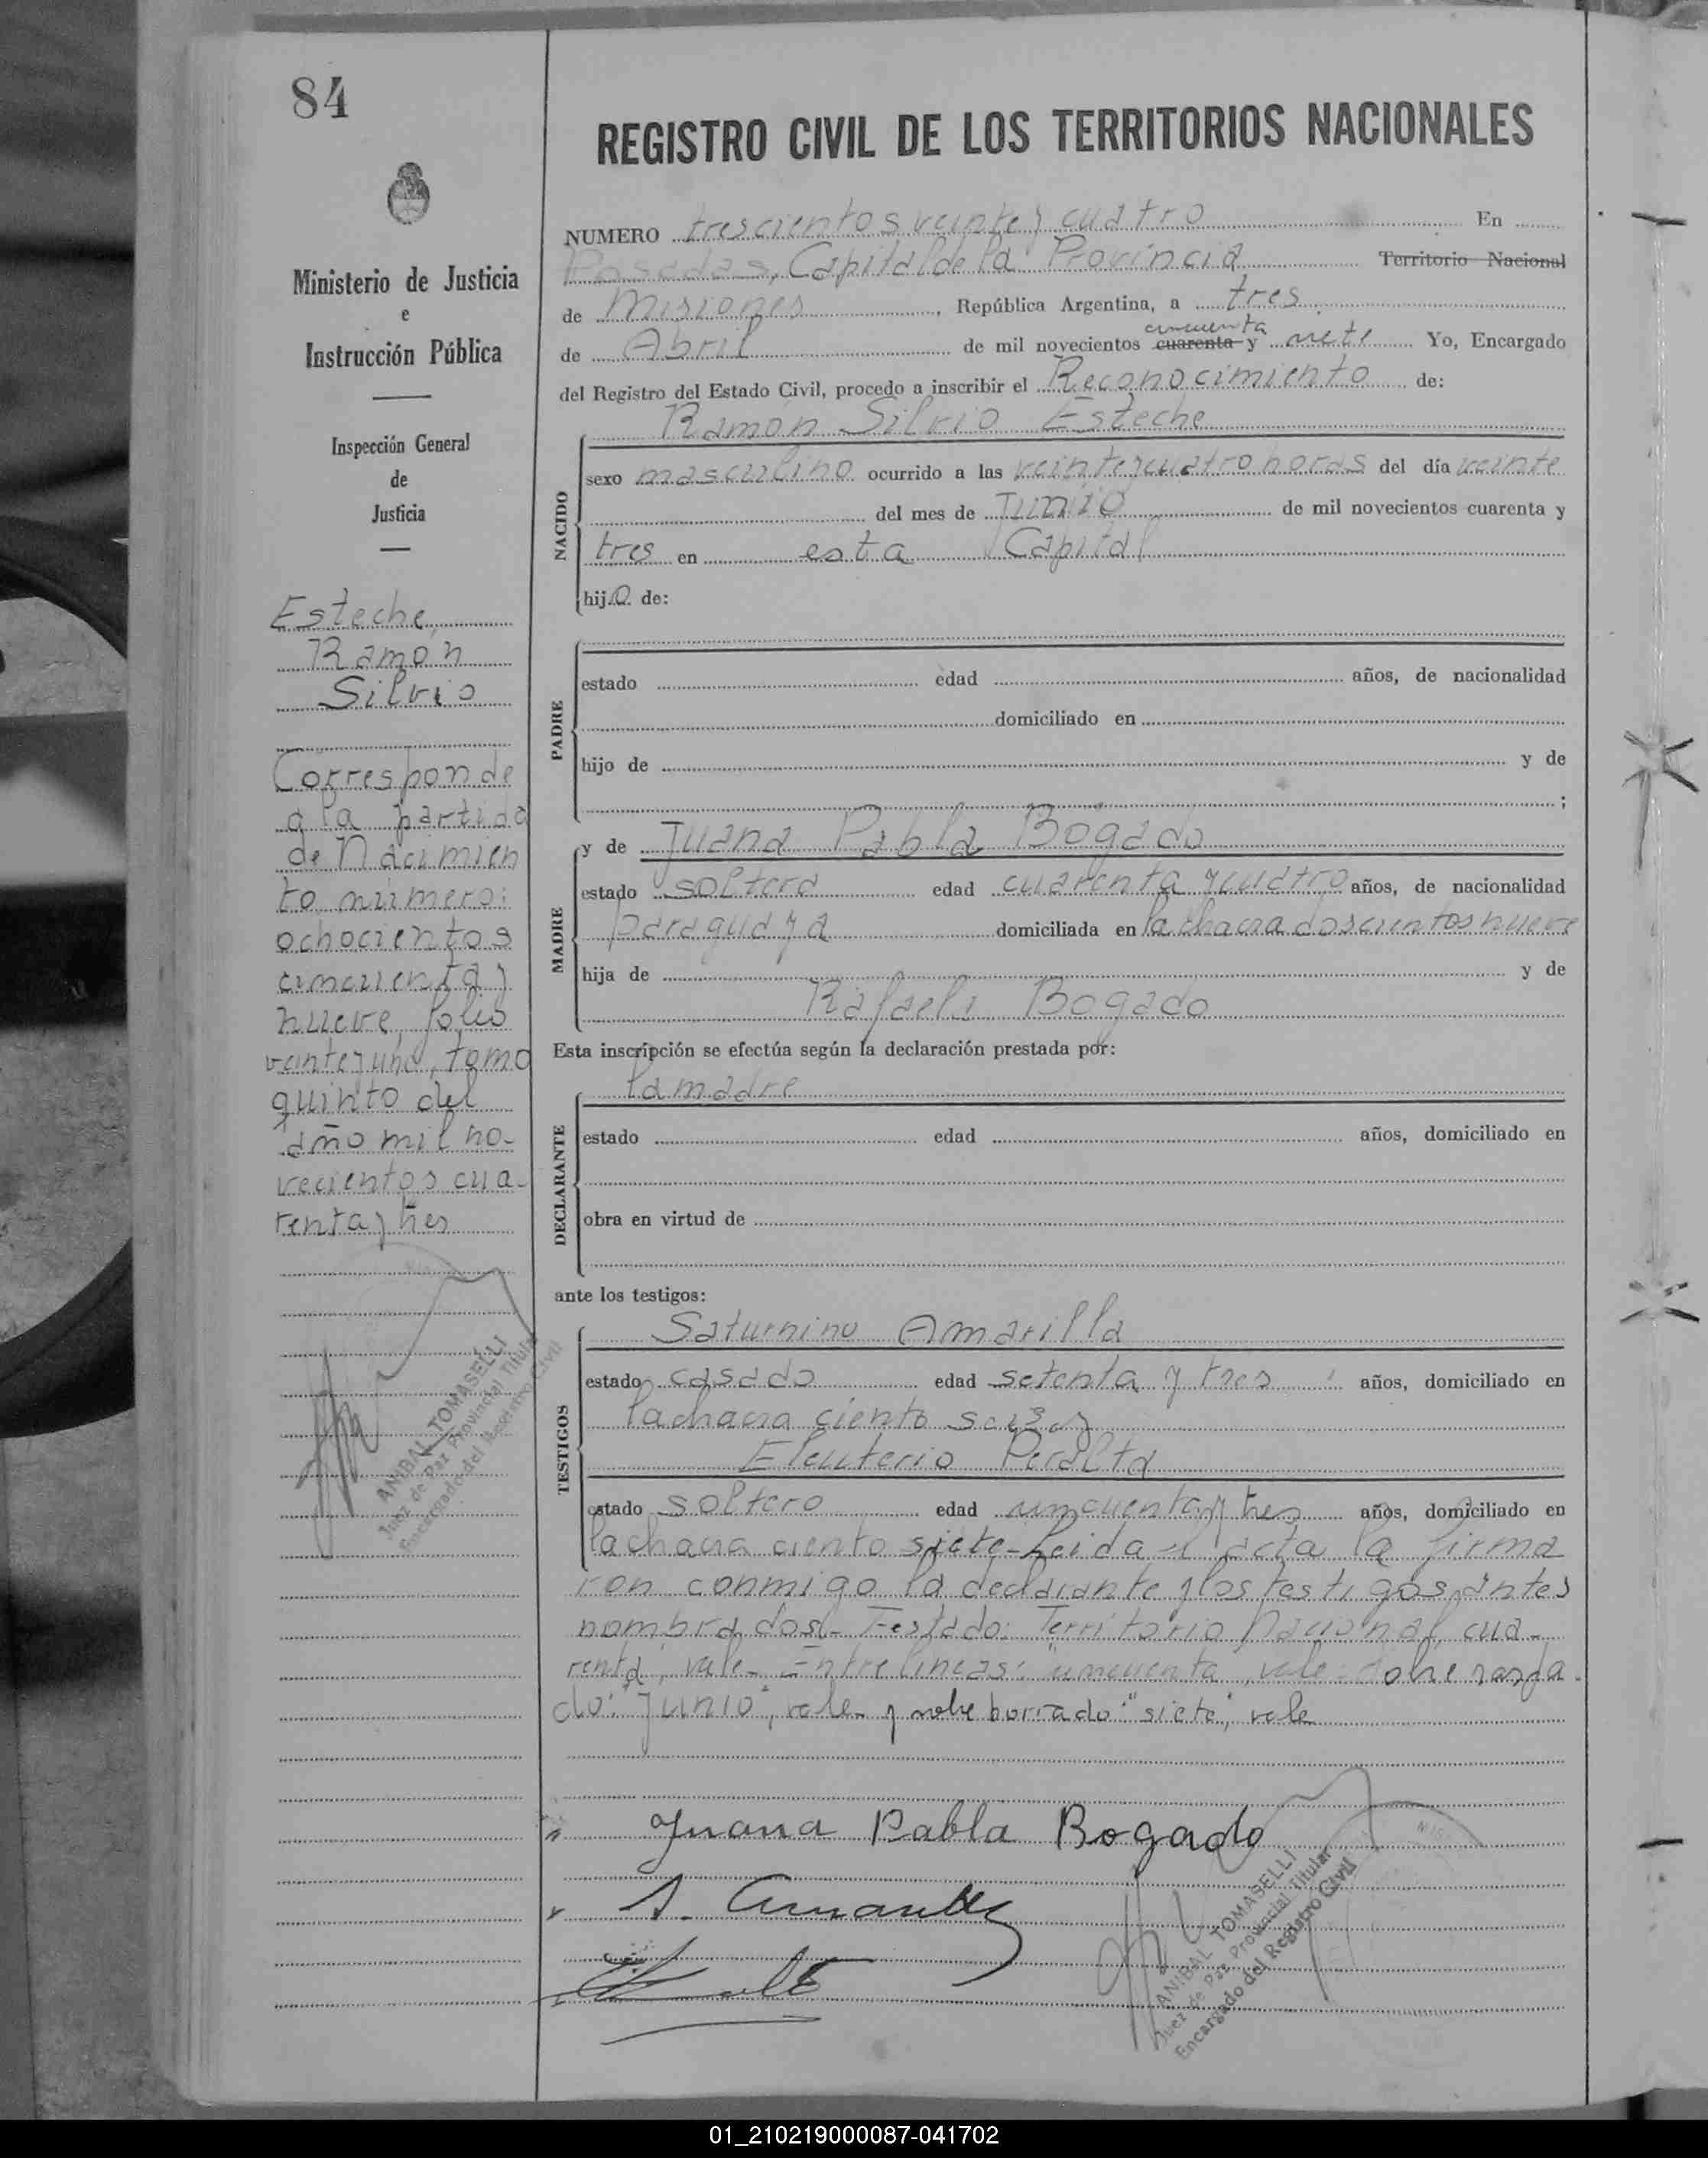 84
REGISTRO CIVIL DE LOS TERRITORIOS NACIONALES
Ministerio de Justicia
e
Instrucción Pública
Inspección General
de
Justicia
Esteche,
Ramón
Silvio
Corresponde
a la partida
de Nacimien
to número:
ochocientos
cincuenta y
nueve, folio
veinte y uno, tomo
quinto del
año mil no-
vecientos cua-
renta y tres
ANIBAL TOMASELLI
Juez de Paz Provincial Titular
Encargado del Registro Civil
NUMERO trescientos veinte y cuatro En
Posadas, Capital de la Provincia Territorio Nacional
de Misiones, República Argentina, a tres
cincuenta
de Abril de mil novecientos cuarenta y siete Yo, Encargado
del Registro del Estado Civil, procedo a inscribir el Reconocimiento de:
Ramón Silvio Esteche
NACIDO
sexo masculino ocurrido a las veinte y cuatro horas del día veinte
del mes de Junio de mil novecientos cuarenta y
tres en esta Capital
hijo de:
PADRE
estado edad años, de nacionalidad
domiciliado en
hijo de y de
;
MADRE
y de Juana Pabla Bogado
estado soltera edad cuarenta y cuatro años, de nacionalidad
paraguaya domiciliada en la chacra doscientos nueve
hija de y de
Rafaela Bogado
Esta inscripción se efectúa según la declaración prestada por:
DECLARANTE
la madre
estado edad años, domiciliado en
obra en virtud de
ante los testigos:
TESTIGOS
Saturnino Amarilla
estado casado edad setenta y tres años, domiciliado en
la chacra ciento seis y
Eleuterio Peralta
estado soltero edad cincuenta y tres años, domiciliado en
la chacra ciento siete-Leida el acta la firma
ron conmigo la declarante y los testigos antes
nombrados- Testado: Territorio Nacional, cua-
renta, vale- Entre lineas: "cincuenta, vale- Sobre raspa-
do: "Junio", vale- y sobre borrado: "siete", vale
Juana Pabla Bogado
ANIBAL TOMASELLI
Juez de Paz Provincial Titular
Encargado del Registro Civil
01_210219000087-041702